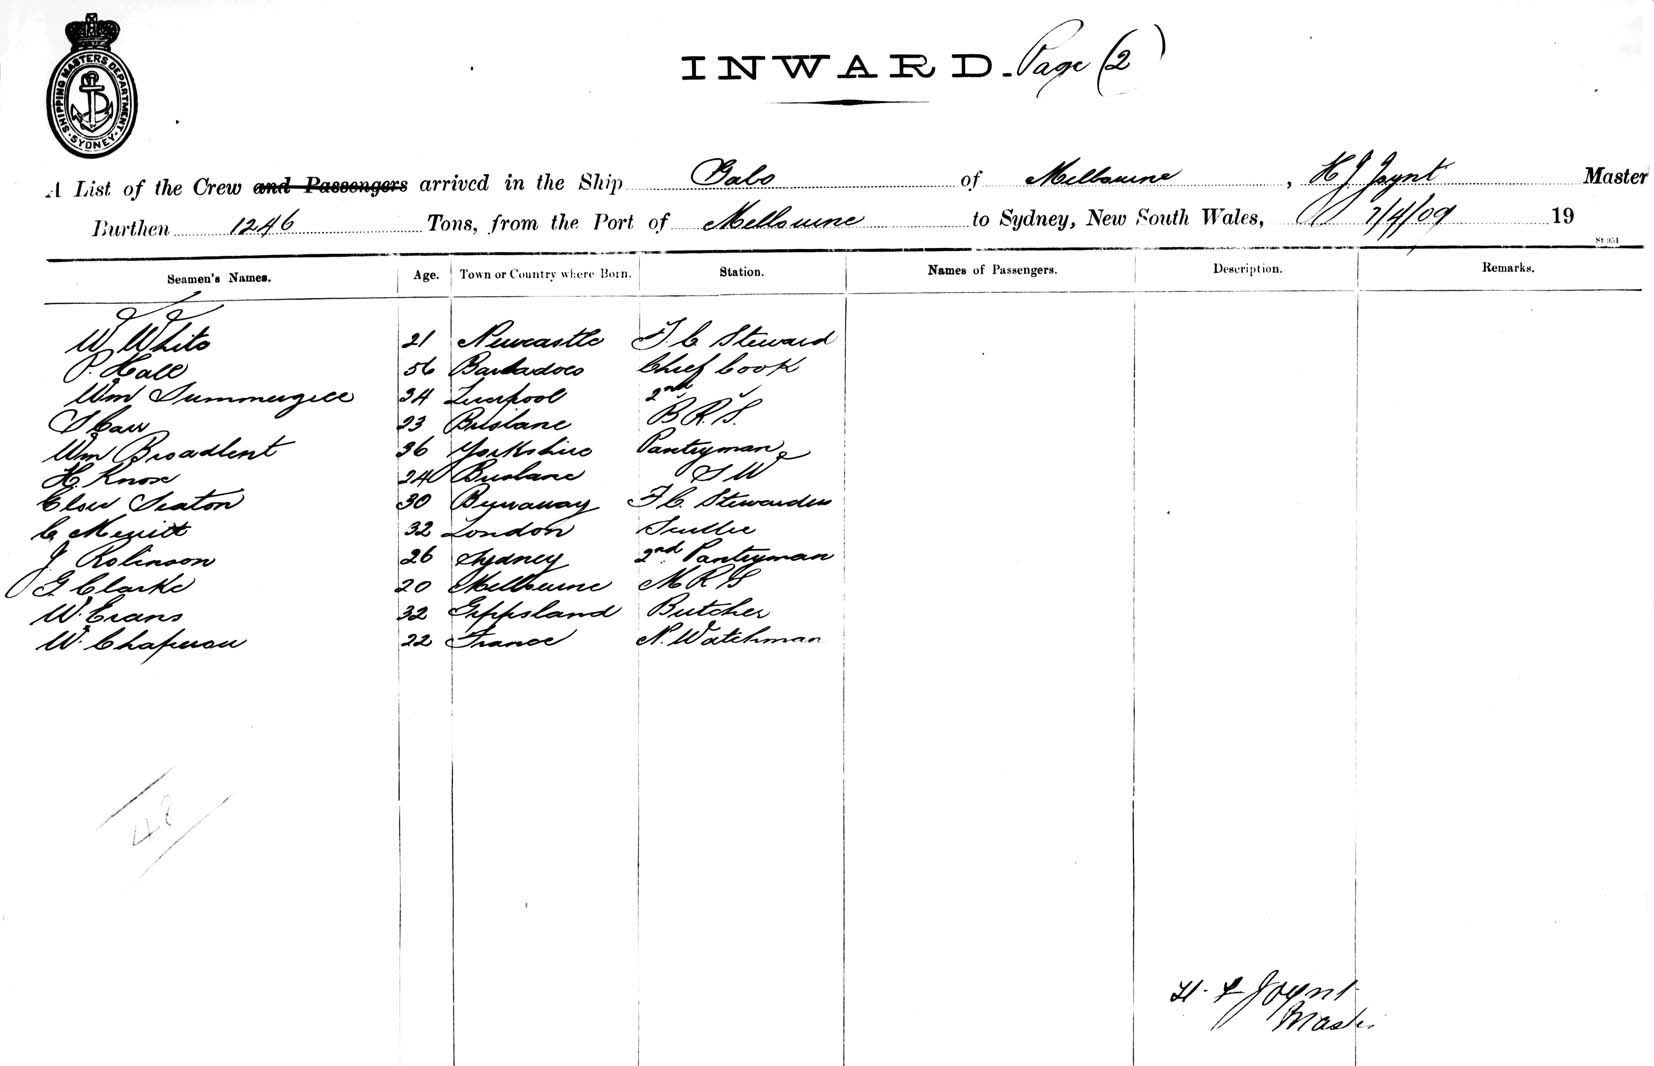 SHIPPING MASTERS DEPARTMENT
SYDNEY
INWARD. Page (2)
A List of the Crew and Passengers arrived in the Ship Gabo of Melbourne, H J Joynt Master
Burthen 1246 Tons, from the Port of Melbourne to Sydney, New South Wales, 7/4/09 19
St 951
Seamen's Names. Age. Town or Country where Born. Station. Names of Passengers. Description. Remarks.
W White 21 Newcastle F. C Steward
P. Hall 56 Barbadoes Chief Cook
Wm Summergill 34 Liverpool 2nd "
S Carr 23 Brisbane B. R. S.
Wm Broadbent 36 Yorkshire Pantryman
H. Knox 24 Brisbane S W
Elsie Seaton 30 30 F. C. Stewardess
C Merritt 32 London Scullie
J Robinson 26 Sydney 2nd Pantryman
G Clarke 20 Melbourne M R S
W. Evans 32 Gippsland Butcher
W. Chaperon 22 France N. Watchman
48
H. J Joynt
Master